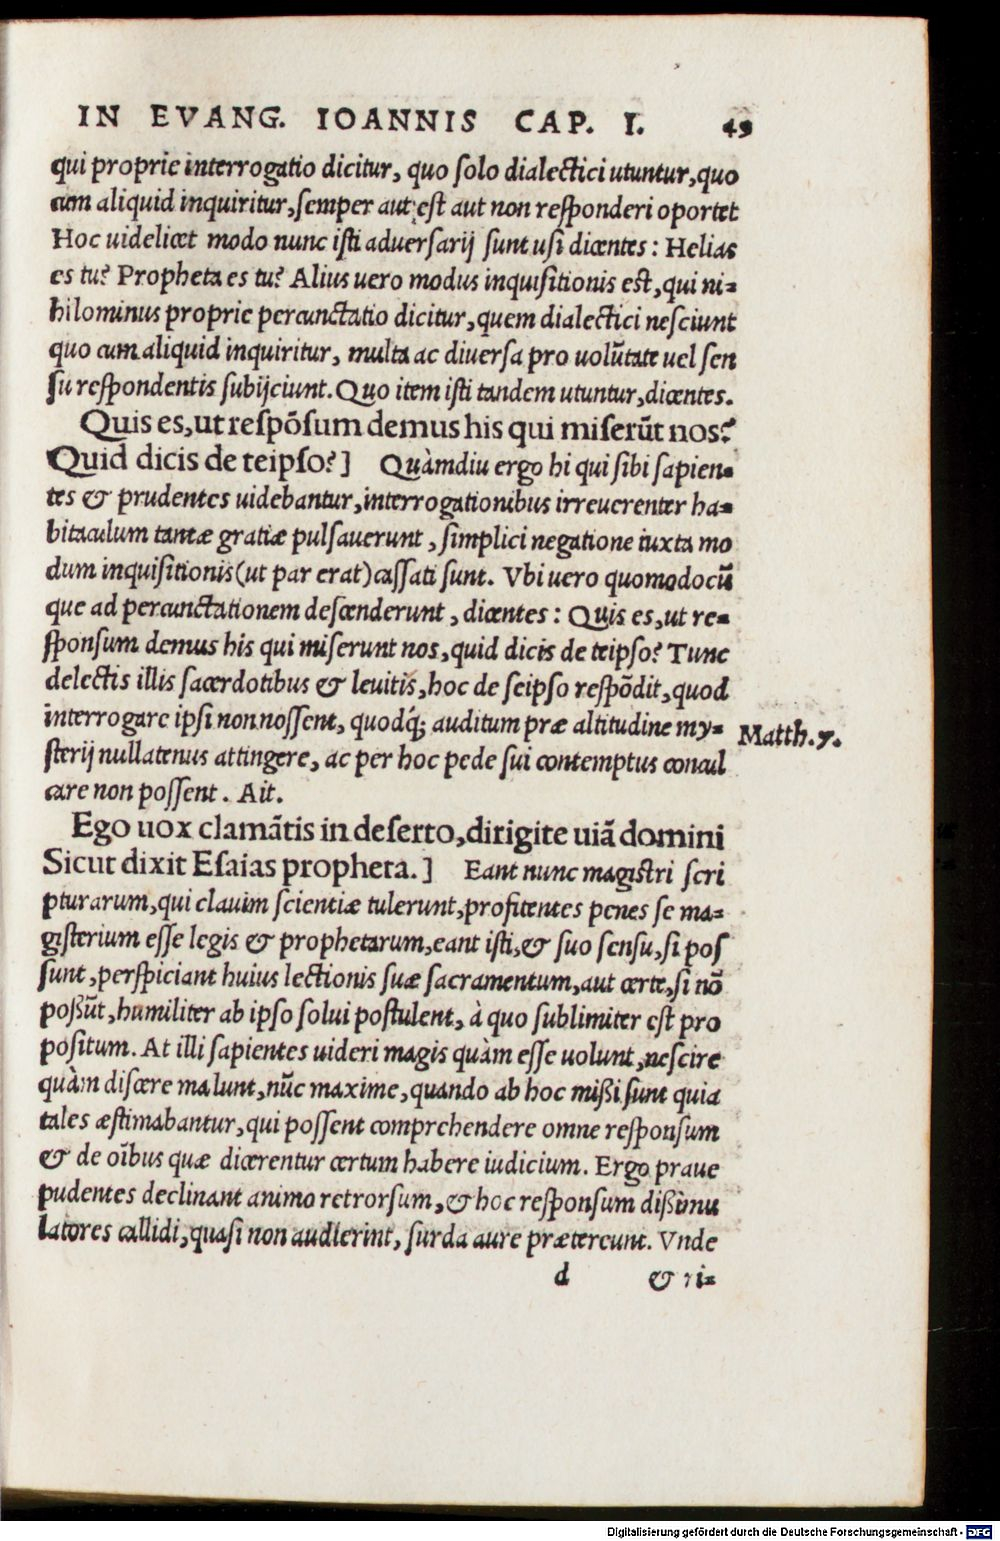 IN EVANG. IOANNIS CAP. I. 49
qui proprie interrogatio dicitur, quo solo dialectici utuntur, quo
cum aliquid inquiritur, semper aut est aut non responderi oportet
Hoc uidelicet modo nunc isti aduersarij sunt usi dicentes: Helias
es tu? Propheta es tu? Alius uero modus inquisitionis est, qui ni-
hilominus proprie percunctatio dicitur, quem dialectici nesciunt
quo cum aliquid inquiritur, multa ac diuersa pro uolũtate uel sen
su respondentis subijciunt. Quo item isti tandem utuntur, dicentes.
Quis es, ut respõsum demus his qui miserũt nos?
Quid dicis de teipso?] Quàmdiu ergo hi qui sibi sapien-
tes & prudentes uidebantur, interrogationibus irreuerenter ha-
bitaculum tantæ gratiæ pulsauerunt, simplici negatione iuxta mo
dum inquisitionis (ut par erat) cassati sunt. Vbi uero quomodocũ
que ad percunctationem descenderunt, dicentes: Quis es, ut re-
sponsum demus his qui miserunt nos, quid dicis de teipso? Tunc
delectis illis sacerdotibus & leuitis, hoc de seipso respõdit, quod
interrogare ipsi non nossent, quodq́; auditum præ altitudine my-
sterij nullatenus attingere, ac per hoc pede sui contemptus concul
care non possent. Ait.
Matth. 7.
Ego uox clamãtis in deserto, dirigite uiã domini
Sicut dixit Esaias propheta.] Eant nunc magistri scri
pturarum, qui clauim scientiæ tulerunt, profitentes penes se ma-
gisterium esse legis & prophetarum, eant isti, & suo sensu, si pos
sunt, perspiciant huius lectionis suæ sacramentum, aut certe, si nõ
poßũt, humiliter ab ipso solui postulent, à quo sublimiter est pro
positum. At illi sapientes uideri magis quàm esse uolunt, nescire
quàm discere malunt, nũc maxime, quando ab hoc mißi sunt quia
tales æstimabantur, qui possent comprehendere omne responsum
& de oĩbus quæ dicerentur certum habere iudicium. Ergo praue
pudentes declinant animo retrorsum, & hoc responsum dißimu
latores callidi, quasi non audierint, surda aure prætereunt. Vnde
d & ri-
Digitalisierung gefördert durch die Deutsche Forschungsgemeinschaft - DFG